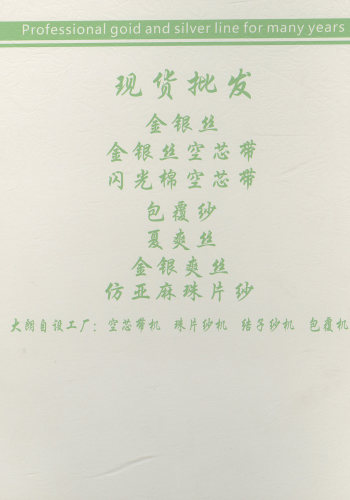 Professional goid and silver line for many years
现货批发
金银丝
金银丝空芯带
闪光棉空芯带
包覆纱
夏爽丝
金银爽丝
仿亚麻珠片纱
大朗自设工厂：空芯带机 珠片纱机 结子纱机 包覆机